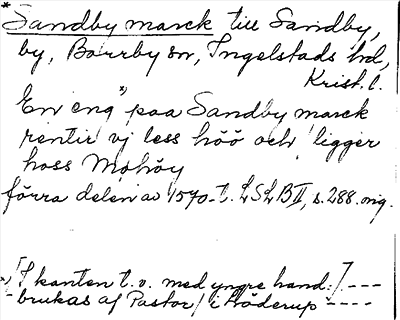 * Sandby marck till Sandby,
by, Borrby sn, Ingelstads hd,
Krist. l.
En eng *) paa Sandby marck
rentir vj less höö och ligger
hoss Mohöy
förra delen av 1570-t. LSLB II, s. 288. orig.
*) [I kanten t.v. med yngre hand:] ---
- brukas af Pastor / i Höderup ----